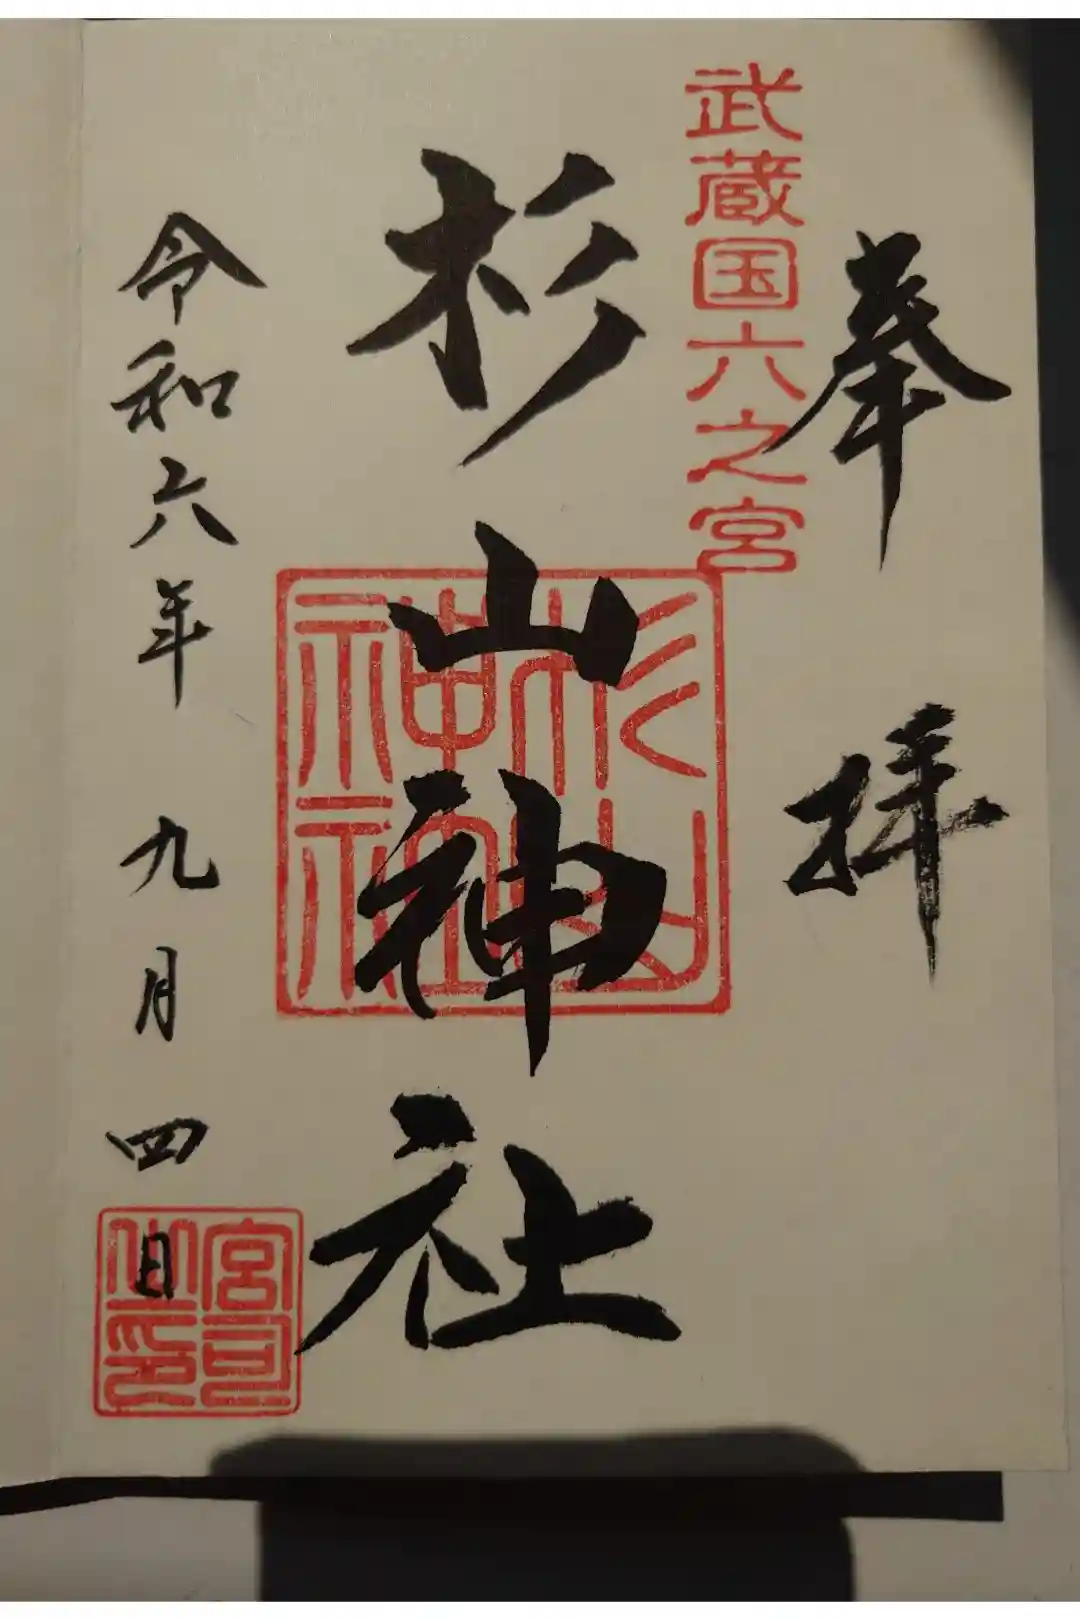 奉拝
武蔵国六之宮
杉山神社
杉山神社
令和六年九月四日
宮司之印